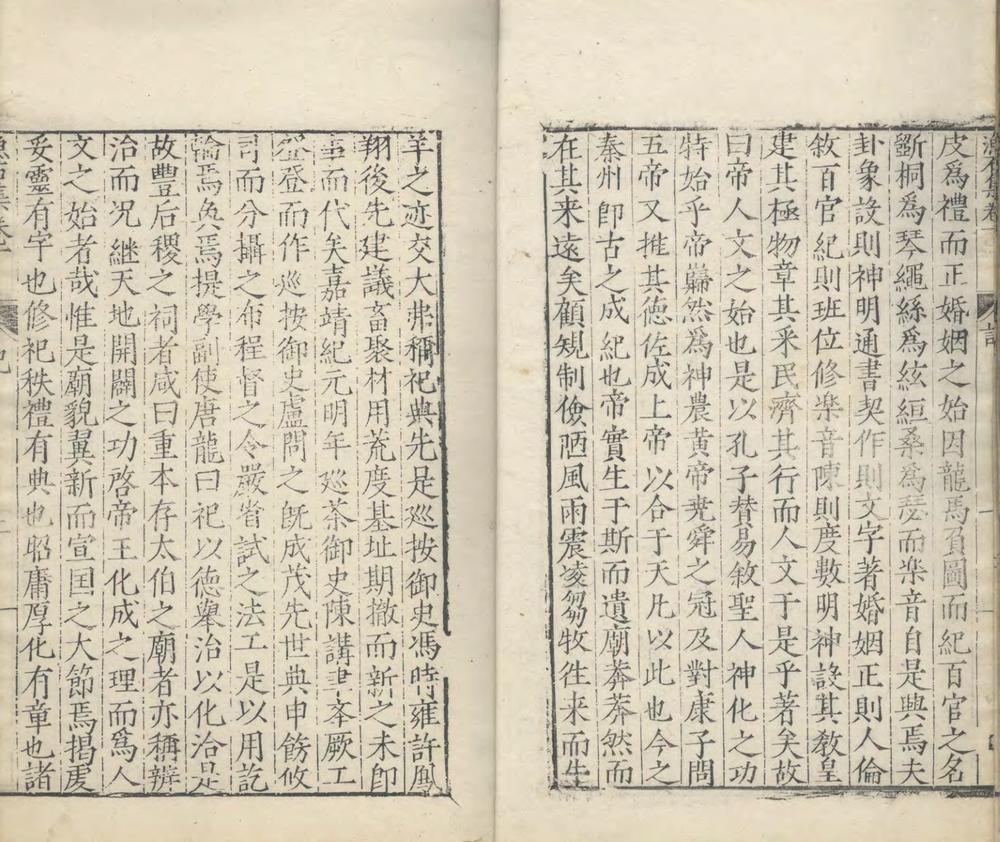 皮爲禮而正婚姻之始因龍馬負圖而紀百官之名
斵桐爲琴繩絲爲絃絙桑爲瑟而楽音自是興焉夫
卦象設則神明通書契作則文字著婚姻正則人倫
敘百官紀則班位修楽音陳則度數明神設其教皇
建其極物章其采民濟其行而人文于是乎著矣故
曰帝人文之始也是以孔子賛易敘聖人神化之功
特始乎帝巋然爲神農黄帝尭舜之冠及對康子問
五帝又推其徳佐成上帝以合于天凡以此也今之
秦州卽古之成紀也帝實生于斯而遺廟莾莾然而
在其来遠矣顧䂓制儉陋風雨震凌芻牧徃来而生
羊之迹交大弗稱祀典先是廵按御史馮時雍許鳳
翔後先建議畜聚材用荒度基址期撤而新之未卽
事而代矣嘉靖紀元明年廵茶御史陳講聿夲厥工
登登而作廵按御史盧問之旣成茂先世典申飭攸
司而分攝之布程督之令嚴省試之法工是以用訖
輪焉奐焉提學副使唐龍曰祀以徳舉治以化洽是
故豊后稷之祠者咸曰重本存太伯之廟者亦稱辨
治而况継天地開闢之功啓帝王化成之理而爲人
文之始者哉惟是廟貌翼新而宣囯之大節焉揭䖍
妥靈有字也修祀秩禮有典也昭庸厚化有章也諸